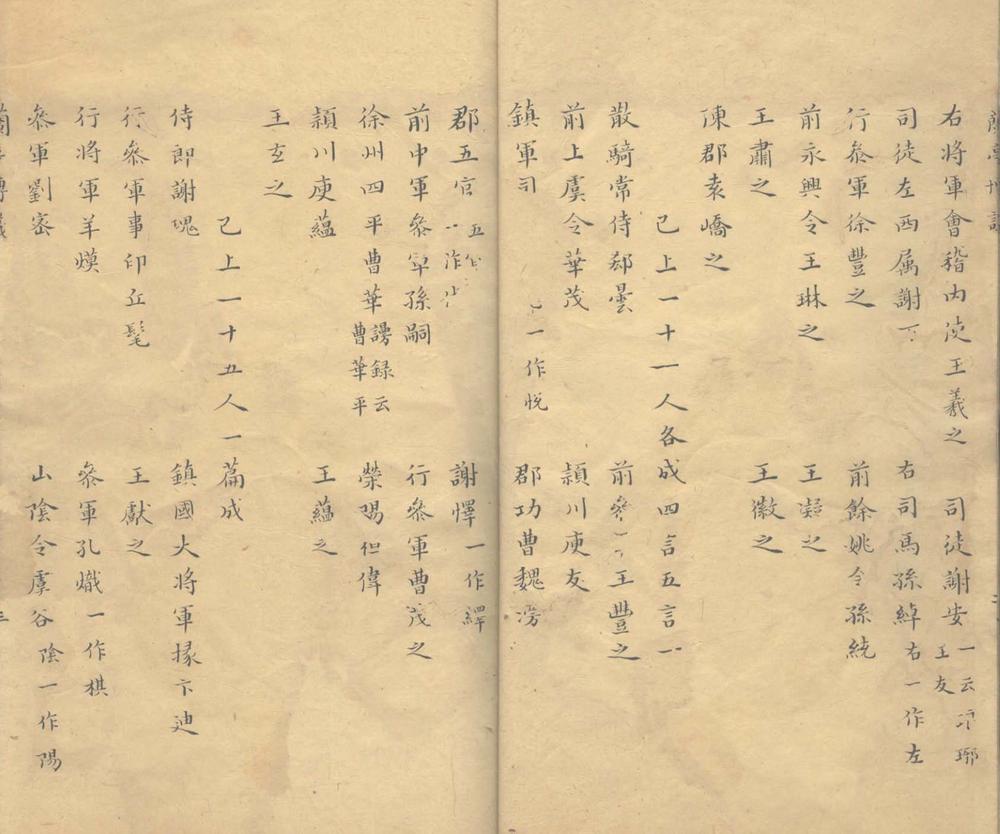 右將軍會稽內史王羲之 司徒謝安一云 琊王友
司徒左西属謝 右司馬孫綽右一作左
行叅軍徐豐之 前餘姚令孫統
前永興令王琳之 王凝之
王肅之 王徽之
陳郡袁嶠之
已上一十一人各成四言五言一
散騎常侍郄曇 前叅 王豐之
前上虞令華茂 潁川庾友
鎮軍司 一作悅 郡功曹魏滂
郡五官 一作 謝懌一作繹
前中軍叅軍孫嗣 行叅軍曹茂之
徐州四平曹華謾録云曹華平 滎陽桓偉
潁川庾蘊 王蘊之
王玄之
已上一十五人一篇成
侍郎謝瑰 鎮國大將軍掾卞迪
行叅軍事印丘髦 王獻之
行將軍羊煐 叅軍孔熾一作棋
叅軍劉密 山陰令虞谷陰一作陽